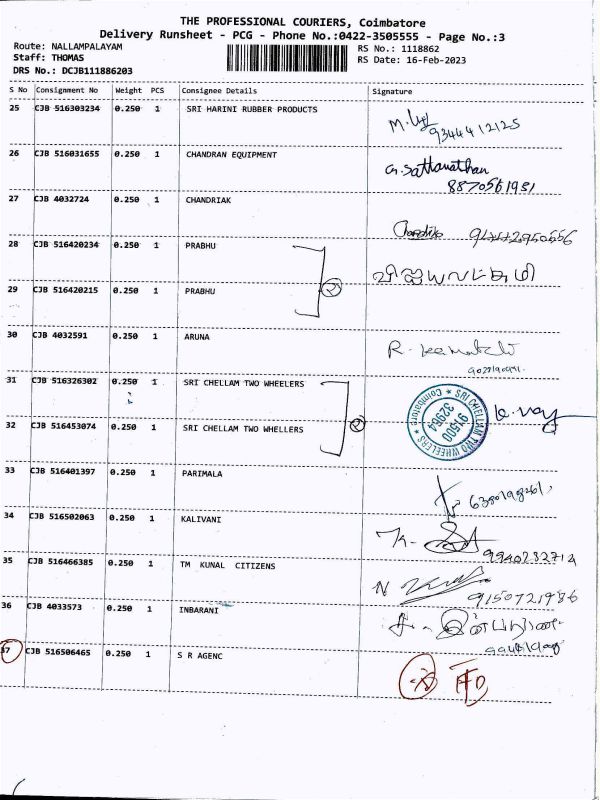 THE PROFESSIONAL COURIERS, Coimbatore
Delivery Runsheet - PCG - Phone No.:0422-3505555 - Page No.:3
Route: NALLAMPALAYAM
RS No.: 1118862
Staff: THOMAS
RS Date: 16-Feb-2023
DRS No.: DCJB111886203
S No Consignment No Weight PCS Consignee Details Signature
25 CJB 516303234 0.250 1 SRI HARINI RUBBER PRODUCTS
9344412125
26 CJB 516031655 0.250 1 CHANDRAN EQUIPMENT G. Sattanathan
8870561931
27 CJB 4032724 0.250 1 CHANDRIAK Chandrika
28 CJB 516420234 0.250 1 PRABHU
விஜயலட்சுமி
29 CJB 516420215 0.250 1 PRABHU
30 CJB 4032591 0.250 1 ARUNA
31 CJB 516326302 0.250 1 SRI CHELLAM TWO WHEELERS
SRI CHELLAM TWO WHEELERS * Coimbatore *
91500
32954
32 CJB 516453074 0.250 1 SRI CHELLAM TWO WHELLERS
33 CJB 516401397 0.250 1 PARIMALA
34 CJB 516502063 0.250 1 KALIVANI
9940232714
35 CJB 516466385 0.250 1 TM KUNAL CITIZENS
9150721986
36 CJB 4033573 0.250 1 INBARANI
37 CJB 516506465 0.250 1 S R AGENC